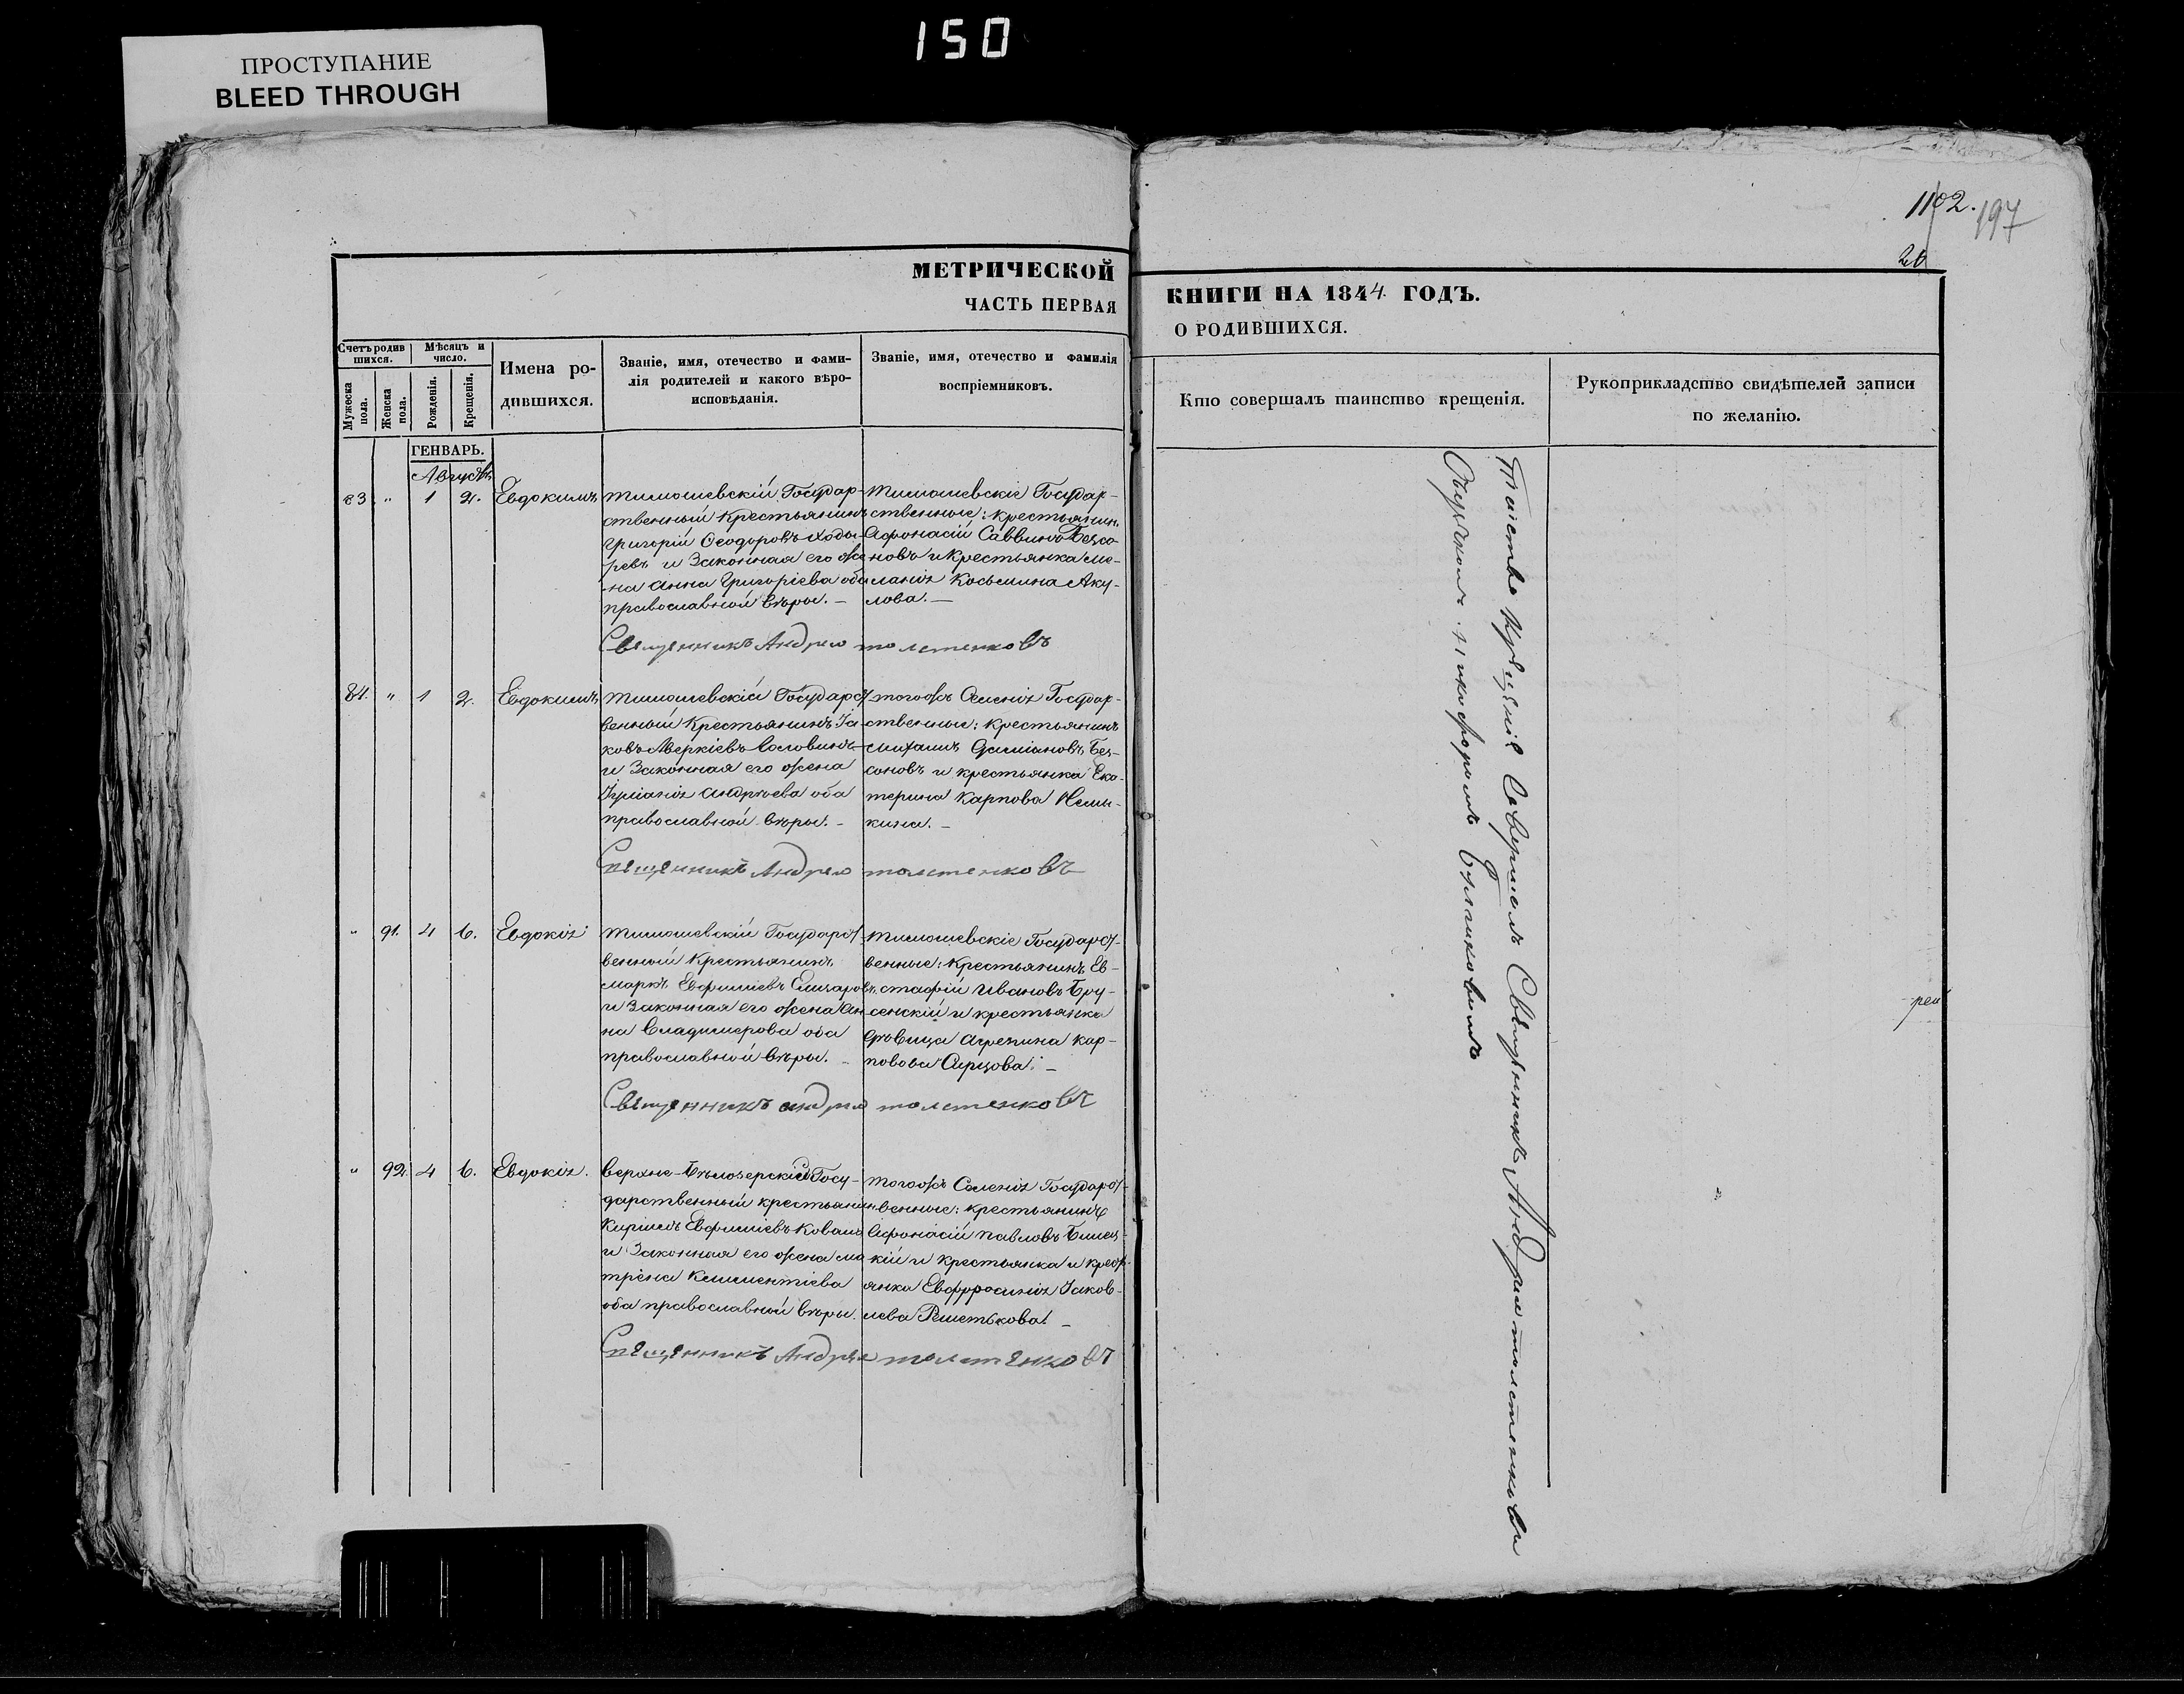 150
ПРОСТУПАНИЕ
BLEED THROUGH
1102. 197
МЕТРИЧЕСКОЙ
ЧАСТЬ ПЕРВАЯ
КНИГИ НА 1844. ГОДЪ.
О РОДИВШИХСЯ.
Счетъ родив
шихся.
Мѣсяцъ и
число.
Мужеска
пола.
Женска
пола.
Рожденія.
Крещенія.
Имена ро-
дившихся.
Званіе, имя, отечество и фами-
лія родителей и какого вѣро-
исповѣданія.
Званіе, имя, отечество и фамилія
воспріемниковъ.
Кто совершалъ таинство крещенія.
Рукоприкладство свидѣтелей записи
по желанію.
ГЕНВАРЬ.
Августъ
83. " 1 2. Евдокимъ
Тимошевскій Государ-
ственный крестьянинъ
Григорій Ѳеодоровъ
и законная его же-
на Анна Григоріева оба
православной вѣры. —
Тимошевскіе Государ-
ственные: крестьянин
Афонасій Саввинъ Безсо-
новъ и крестьянка Ме-
ланія Косьмина Аку-
лова. —
Священникъ Андрей Толстенковъ
84. " 1 2. Евдокимъ
Тимошевскій Государст-
венный крестьянинъ Іа-
ковъ Аверкіевъ
и законная его жена
Іуліанія Андрѣева оба
православной вѣры. —
тогожъ Селенія Государ-
ственные: крестьянинъ
Михаилъ Даміановъ Без-
соновъ и крестьянка Ека-
терина Карпова
кина. —
Священникъ Андрей Толстенковъ
" 91. 4 6. Евдокія
Тимошевскій Государст-
венный крестьянинъ
Маркъ Евфиміевъ
и законная его жена Ан
на Владимерова оба
православной вѣры. —
Тимошевскіе Государст-
венные: крестьянинъ Ев-
стафій Ивановъ Бру-
сенскій и крестьянка
дѣвица Агрепина Кар-
повова Сирцова. —
Священникъ Андрей Толстенковъ
" 92. 4 6. Евдокія.
Верхне-Бѣлозерскій Госу-
дарственный крестьянин
Кирилъ Евфиміевъ Коваль
и законная его жена Ма
трена Климентіева
оба православной вѣры.
тогожъ Селенія Государст-
венные: крестьянинъ
Афонасій Павловъ Билец-
кій и крестьянка и крест-
янка Евфросинія Іаков-
лева Решеткова. —
Священникъ Андрей Толстенковъ
Таинство Крещенія Совершалъ Священникъ Андрей Толстенковъ